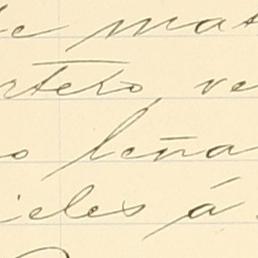 e mat
rtero, ve
o leña
ieles á